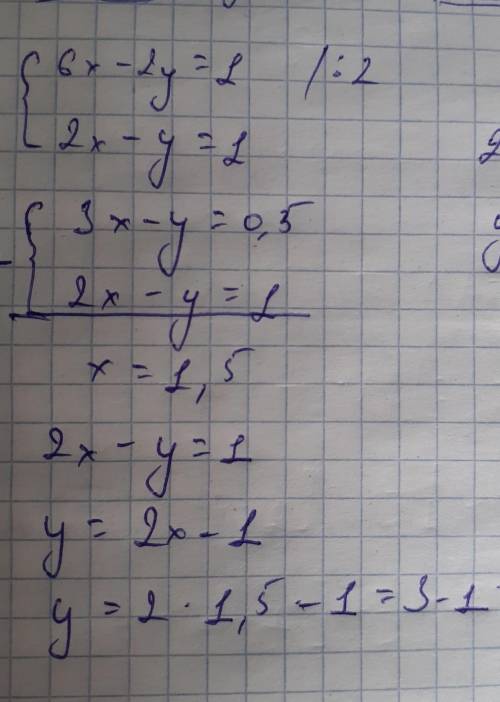 6x - 2y = 1 /:2
2x - y = 1
3x - y = 0,5
2x - y = 1
x = 1,5
2x - y = 1
y = 2x - 1
y = 2 · 1,5 - 1 = 3 - 1